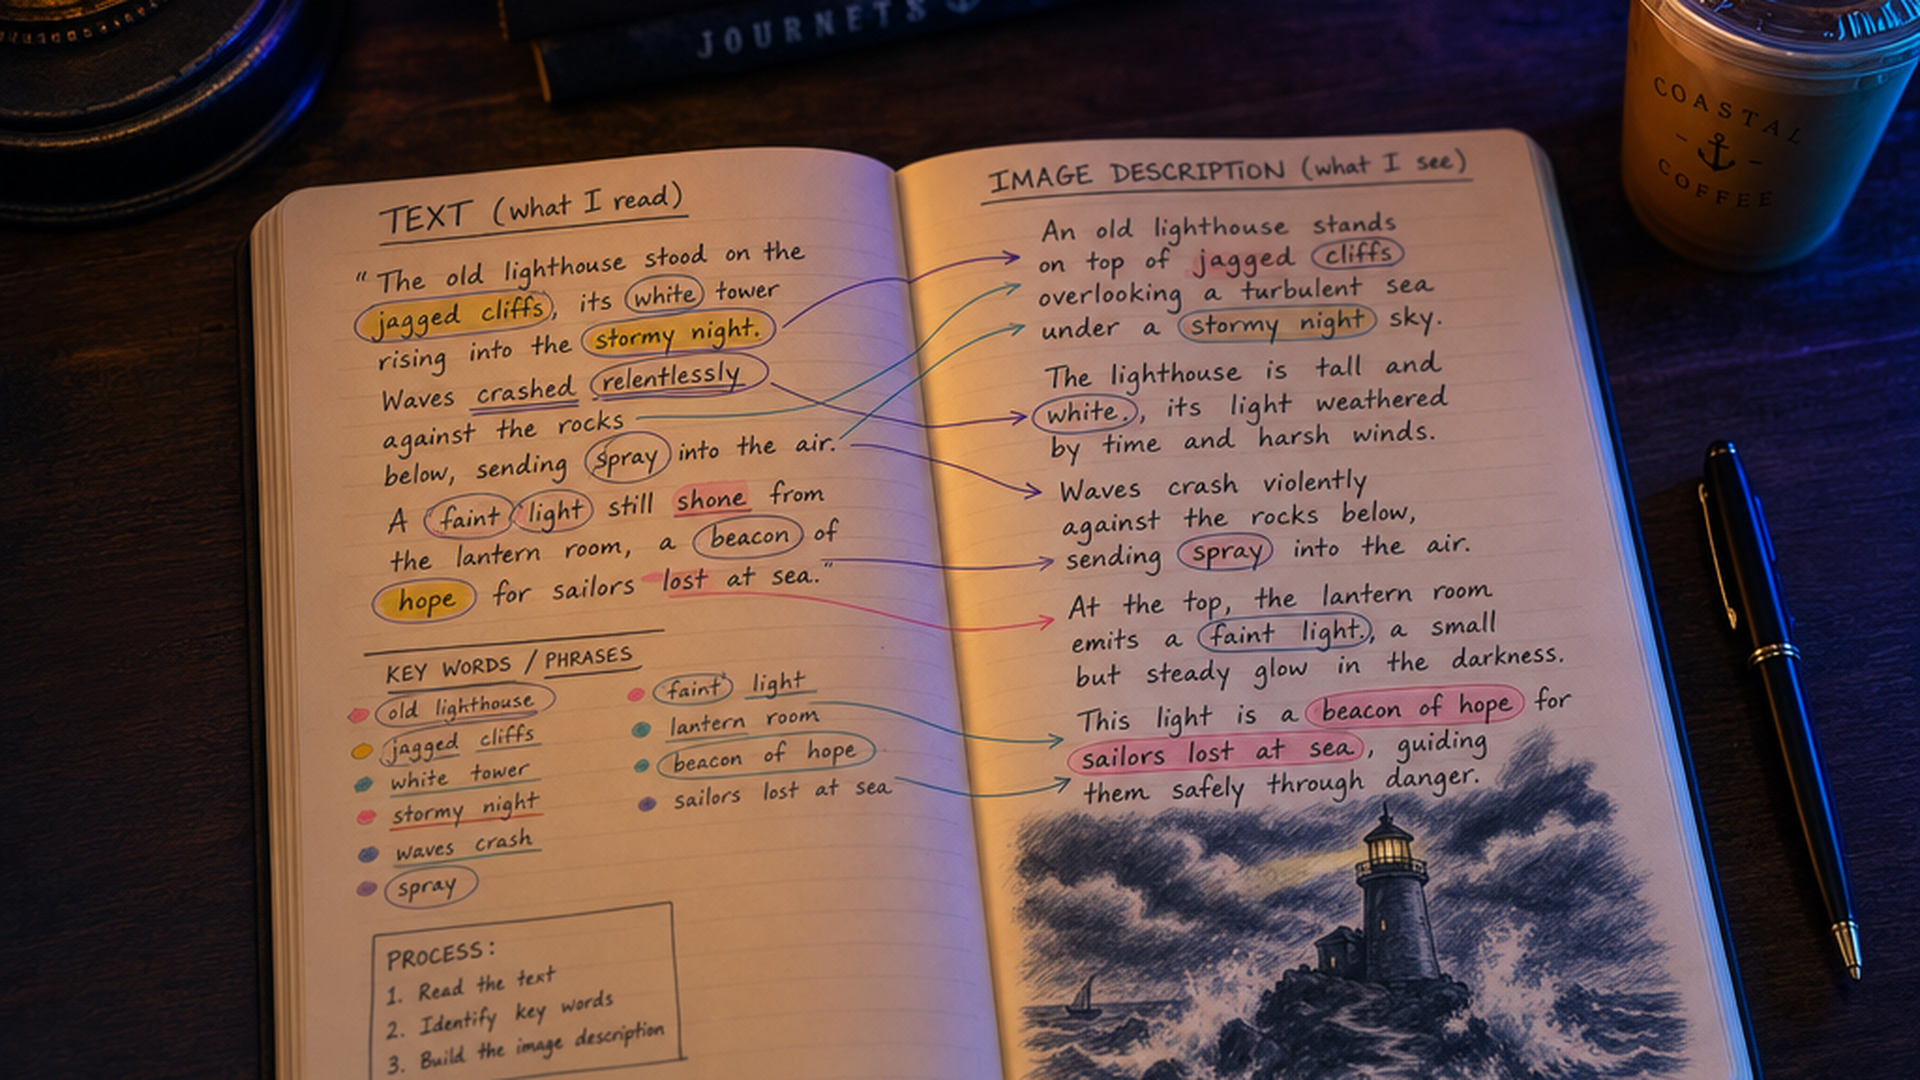 JOURNETS
COASTAL
COFFEE
TEXT (what I read)
“The old lighthouse stood on the
jagged cliffs, its white tower
rising into the stormy night.
Waves crashed relentlessly
against the rocks
below, sending spray into the air.
A faint light still shone from
the lantern room, a beacon of
hope for sailors lost at sea.”
KEY WORDS / PHRASES
old lighthouse
jagged cliffs
white tower
stormy night
waves crash
spray
faint light
lantern room
beacon of hope
sailors lost at sea
PROCESS:
1. Read the text
2. Identify key words
3. Build the image description
IMAGE DESCRIPTION (what I see)
An old lighthouse stands
on top of jagged cliffs
overlooking a turbulent sea
under a stormy night sky.
The lighthouse is tall and
white., its light weathered
by time and harsh winds.
Waves crash violently
against the rocks below,
sending spray into the air.
At the top, the lantern room
emits a faint light., a small
but steady glow in the darkness.
This light is a beacon of hope for
sailors lost at sea, guiding
them safely through danger.